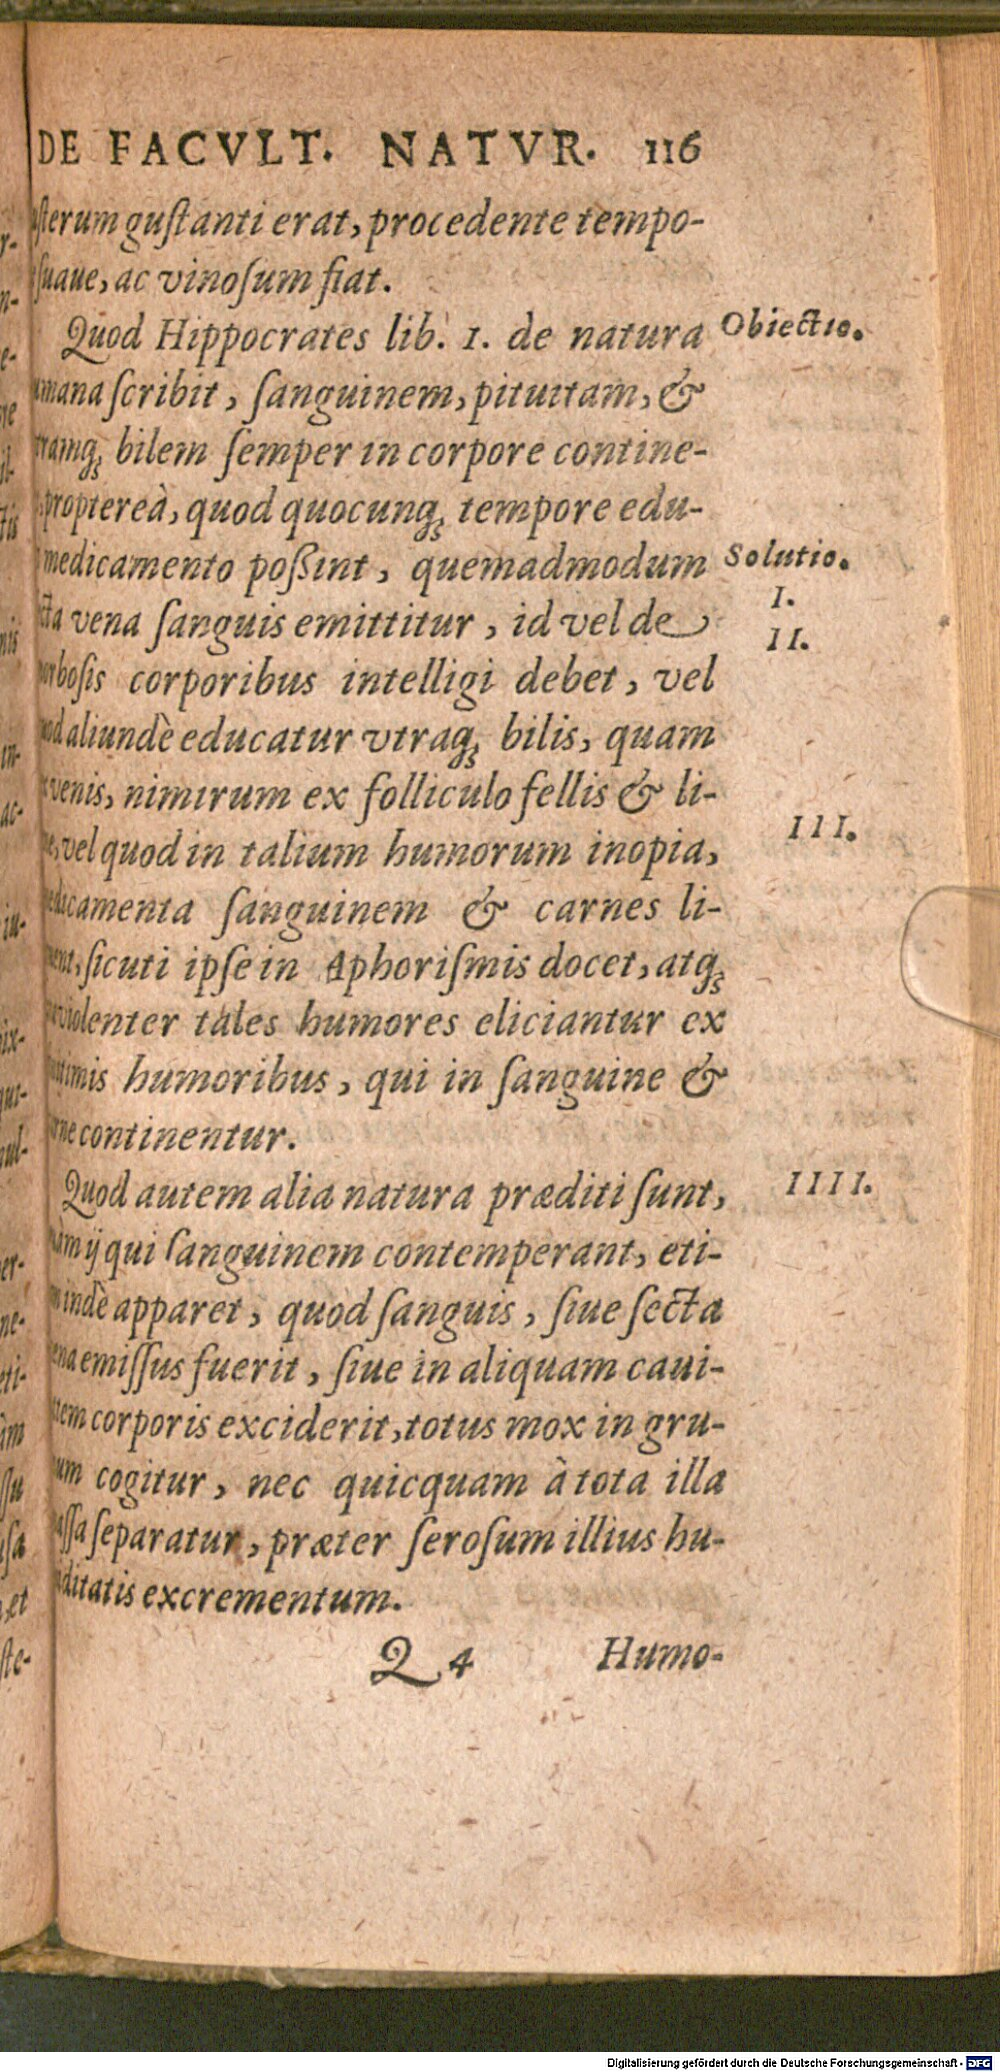 DE FACVLT. NATVR. 116
ſterum guſtanti erat, procedente tempo-
ſuaue, ac vinoſum fiat.
Quod Hippocrates lib. 1. de natura
Obiectio.
mana ſcribit, ſanguinem, pituitam, &
tramq; bilem ſemper in corpore contine-
propterea, quod quocunq; tempore edu-
medicamento poßint, quemadmodum
Solutio.
cta vena ſanguis emittitur, id vel de
I.
II.
rboſis corporibus intelligi debet, vel
od aliundè educatur vtraq; bilis, quam
venis, nimirum ex folliculo fellis & li-
III.
vel quod in talium humorum inopia,
edicamenta ſanguinem & carnes li-
ent, ſicuti ipſe in Aphoriſmis docet, atq;
violenter tales humores eliciantur ex
timis humoribus, qui in ſanguine &
rne continentur.
Quod autem alia natura præditi ſunt,
IIII.
àm ij qui ſanguinem contemperant, eti-
indè apparet, quod ſanguis, ſiue ſecta
ena emiſſus fuerit, ſiue in aliquam caui-
tem corporis exciderit, totus mox in gru-
um cogitur, nec quicquam à tota illa
aſſa ſeparatur, præter ſeroſum illius hu-
iditatis excrementum.
Q 4 Humo-
Digitalisierung gefördert durch die Deutsche Forschungsgemeinschaft - DFG